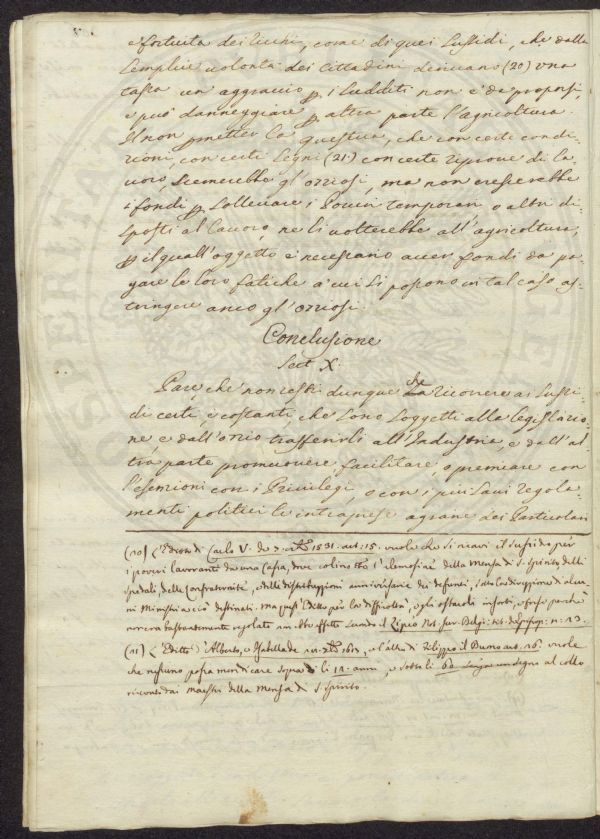 e fortuita dei Ricchi, come di quei Sussidi, che dalla
semplice volontà dei Cittadini derivano (20) una
tassa un aggravio p i sudditi non è da proporsi,
e può danneggiare p altra parte l'agricoltura.
Il non pmetter la questua, che con certe condi-
zioni, con certi segni (21) con certe riprove di la-
voro, scemerebbe gl'oziosi, ma non crescerebbe
i fondi p sollevare i Poveri temporari o altri di-
sposti al lavoro, ne li volterebbe all'agricoltura,
p il quall'oggetto è necessario aver fondi da pa-
gare le loro fatiche a cui si possono in tal caso as-
tringere anco gl'oziosi.
Conclusione
Sect. X.
Pare, che non resti dunque che ricorrere ai sussi-
di certi, e costanti che sono soggetti alla legislazio-
ne, e dall'ozio trasferirli all'Industria, e dall'al-
tra parte promuovere, facilitare, o premiare con
l'esenzioni con i Privilegi, o con i più savi regola-
menti politici le intraprese agrarie dei Particolari
(20) L'Editto di Carlo V. de 7. 1531. art: 15. vuole che si ricavi il sussidio per
i poveri lavoranti da una Cassa, dove colino l'elemosine della Mensa di S. Spirito delli
spedali, delle Confraternite, e delle distribuzioni anniversarie dei defunti, sotto la direzzione di alcu-
ni Ministri a ciò destinati. Ma quest'Editto per la difficoltà, e gli ostacoli insorti, e forse perchè
non era bastantemente regolato non ebbe effetto secondo il Zipeo Not. Jur. Belgi: tit. n: 13.
(21) L'Editto d'Alberto, e Isabella de e l'altro di Filippo il Buono art. 26. vuole
che nessuno possa mendicare sopra di li 12. anni, e sotto li 60 senza un segno al collo
riconosciuto dai maestri della Mensa di S. Spirito.